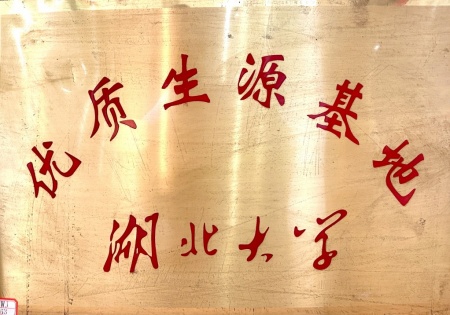 优质生源基地
湖北大学